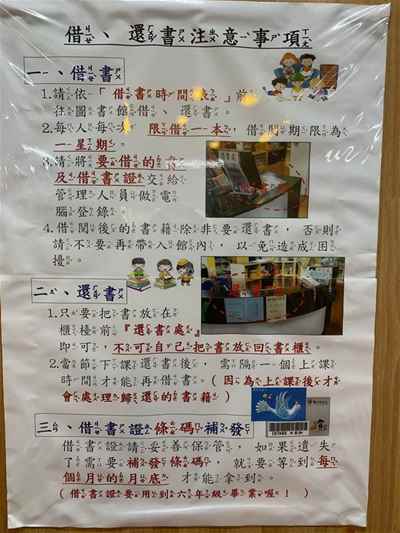 借、還書注意事項
一、借書
1.請依「借書時間表」前
往圖書館借、還書。
2.每人每次限借一本，借閱期限為
一星期。
3.請將要借的書
及借書證交給
管理人員做電
腦登錄。
4.借閱後的書籍除非要還書，否則
請不要再帶入館內，以免造成困
擾。
二、還書
1.只要把書放在
櫃檯前『還書處』
即可，不可自己把書放回書櫃。
2.當節下課還書後，需隔一個上課
時間才能再借書。(因為上課後才
會處理歸還的書籍)
三、借書證條碼補發
借書證請妥善保管，如果遺失
了需要補發條碼，就要等到每
個月的月底才能拿到。
(借書證要用到六年級畢業喔！)